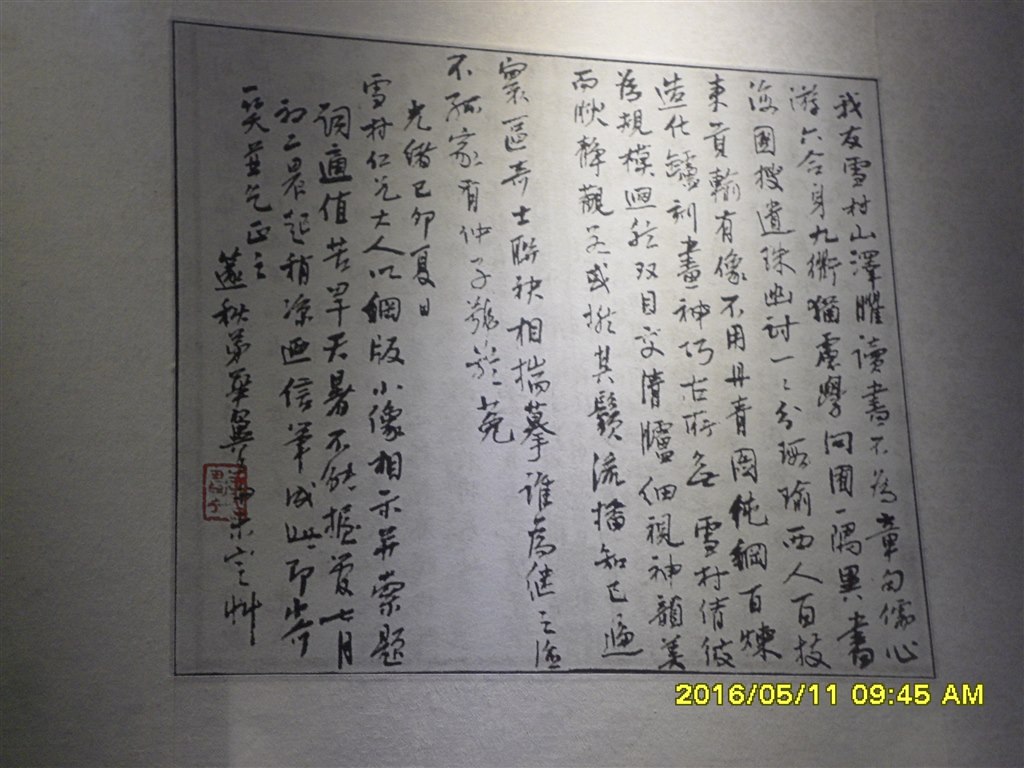 我友雪村山澤臞讀書不為章句儒心
游六合身九衢猶處學問囿一隅異書
海國搜遺珠幽討一一分瑕瑜西人百技
東貢輸有像不用丹青圖純鋼百煉
造化鑪刻畫神巧古所無雪村倩彼
為規模迴然双目炎清臚細視神韻美
而腴靜觀若或撚其鬚流播知己遍
寰區奇士聯袂相揣摹誰為繼之德
不孤家有仲子於菟
光緒己卯夏日
雪村仁兄大人以鋼版小像相示並索題
詞適值苦旱天暑不能握管七月
初二晨起稍涼迺信筆成此即步
一笑並乞正之
秋弟草
2016/05/11 09:45 AM